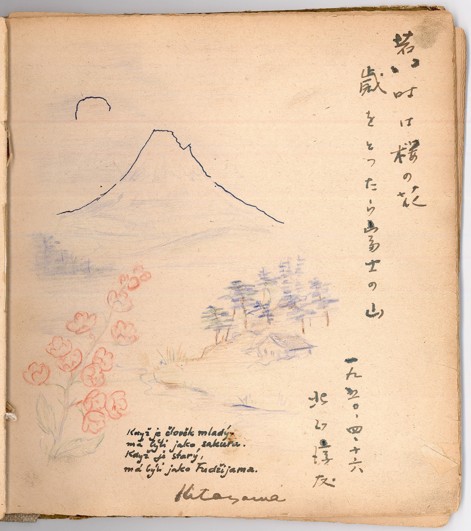 若い時は桜の花
歳をとったら富士の山
一九五〇・四・十六
北山淳友
Když je člověk mladý,
má býti jako sakura.
Když je starý,
má býti jako Fudžijama.
Kitayama